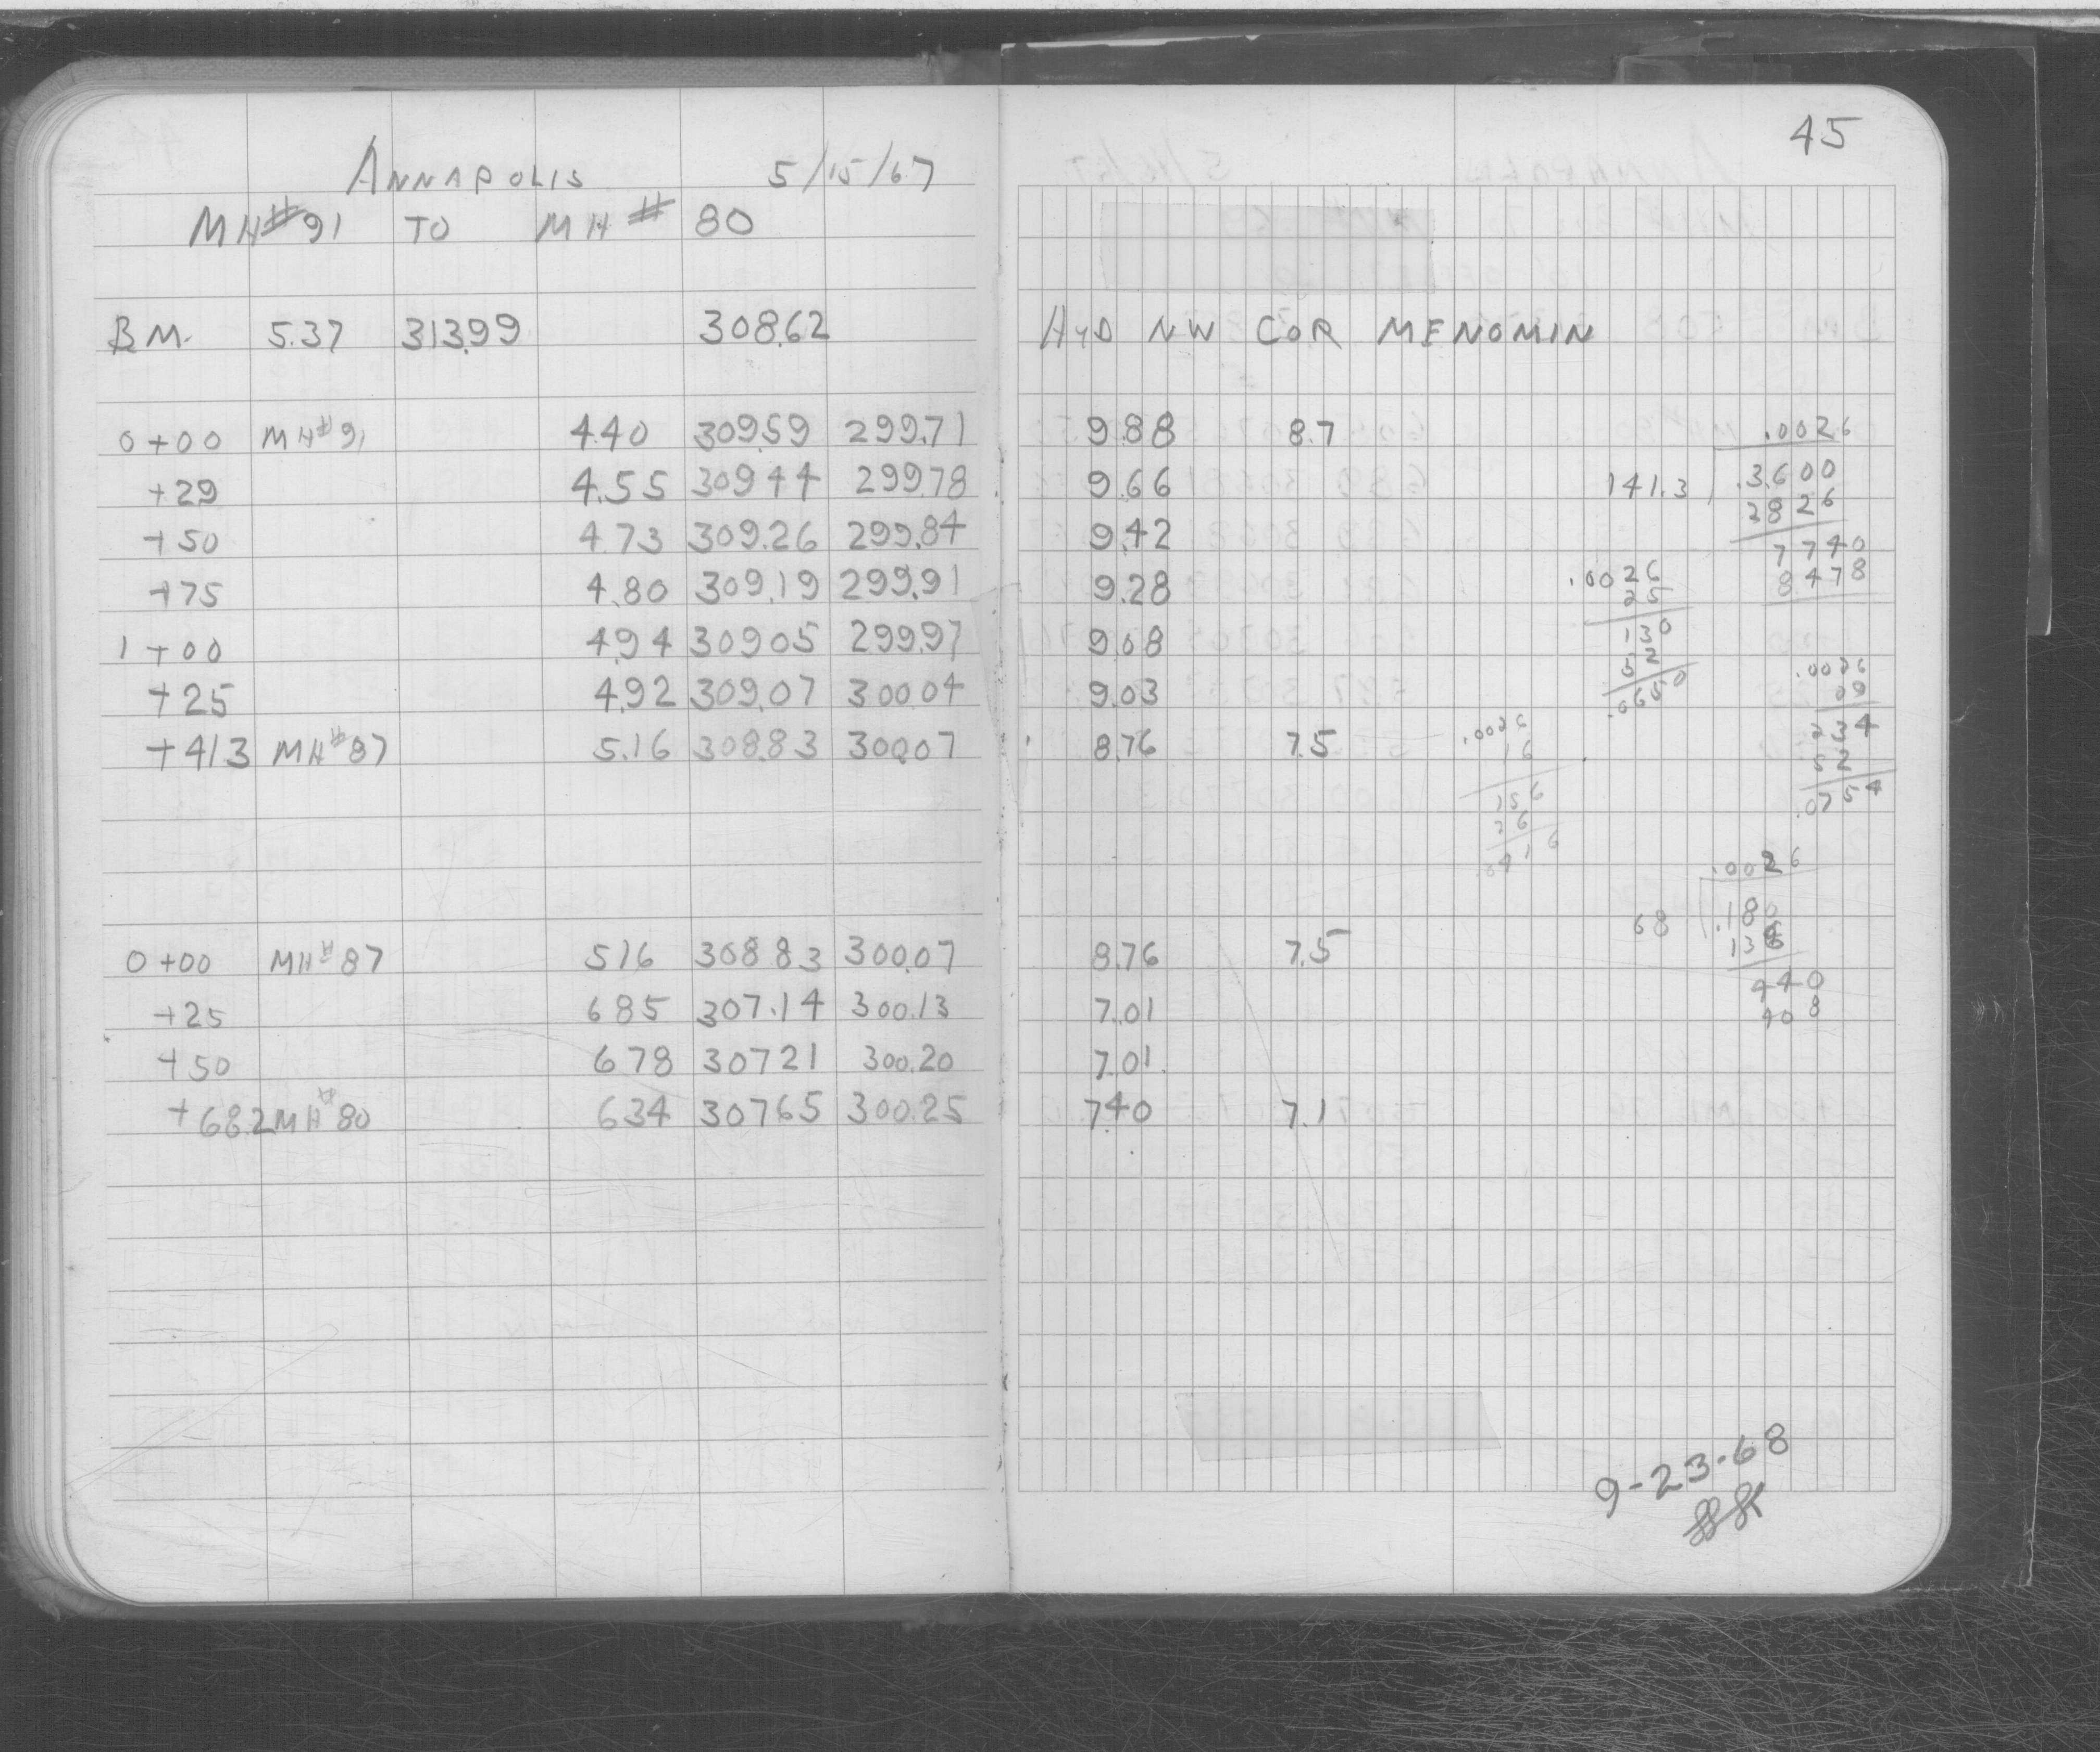 45
ANNAPOLIS 5/15/67
MH# 91 TO MH # 80
BM. 5.37 313.99 308.62 HYD NW COR MENOMIN
0+00 MH#91 4.40 309.59 299.71 9.88 8.7
+29 4.55 309.44 299.78 9.66
+50 4.73 309.26 299.84 9.42
+75 4.80 309.19 299.91 9.28
1+00 4.94 309.05 299.97 9.08
+25 4.92 309.07 300.04 9.03
+41.3 MH#87 5.16 308.83 300.07 8.76 7.5
0+00 MH#87 5.16 308.83 300.07 8.76 7.5
+25 6.85 307.14 300.13 7.01
+50 6.78 307.21 300.20 7.01
+68.2 MH#80 6.34 307.65 300.25 7.40 7.1
.0026
141.3 .3600
2826
7740
8478
.0026
25
130
52
.0650
.0026
29
234
52
.0754
.0026
16
156
26
.0416
.0026
68 .180
136
440
408
9-23-68